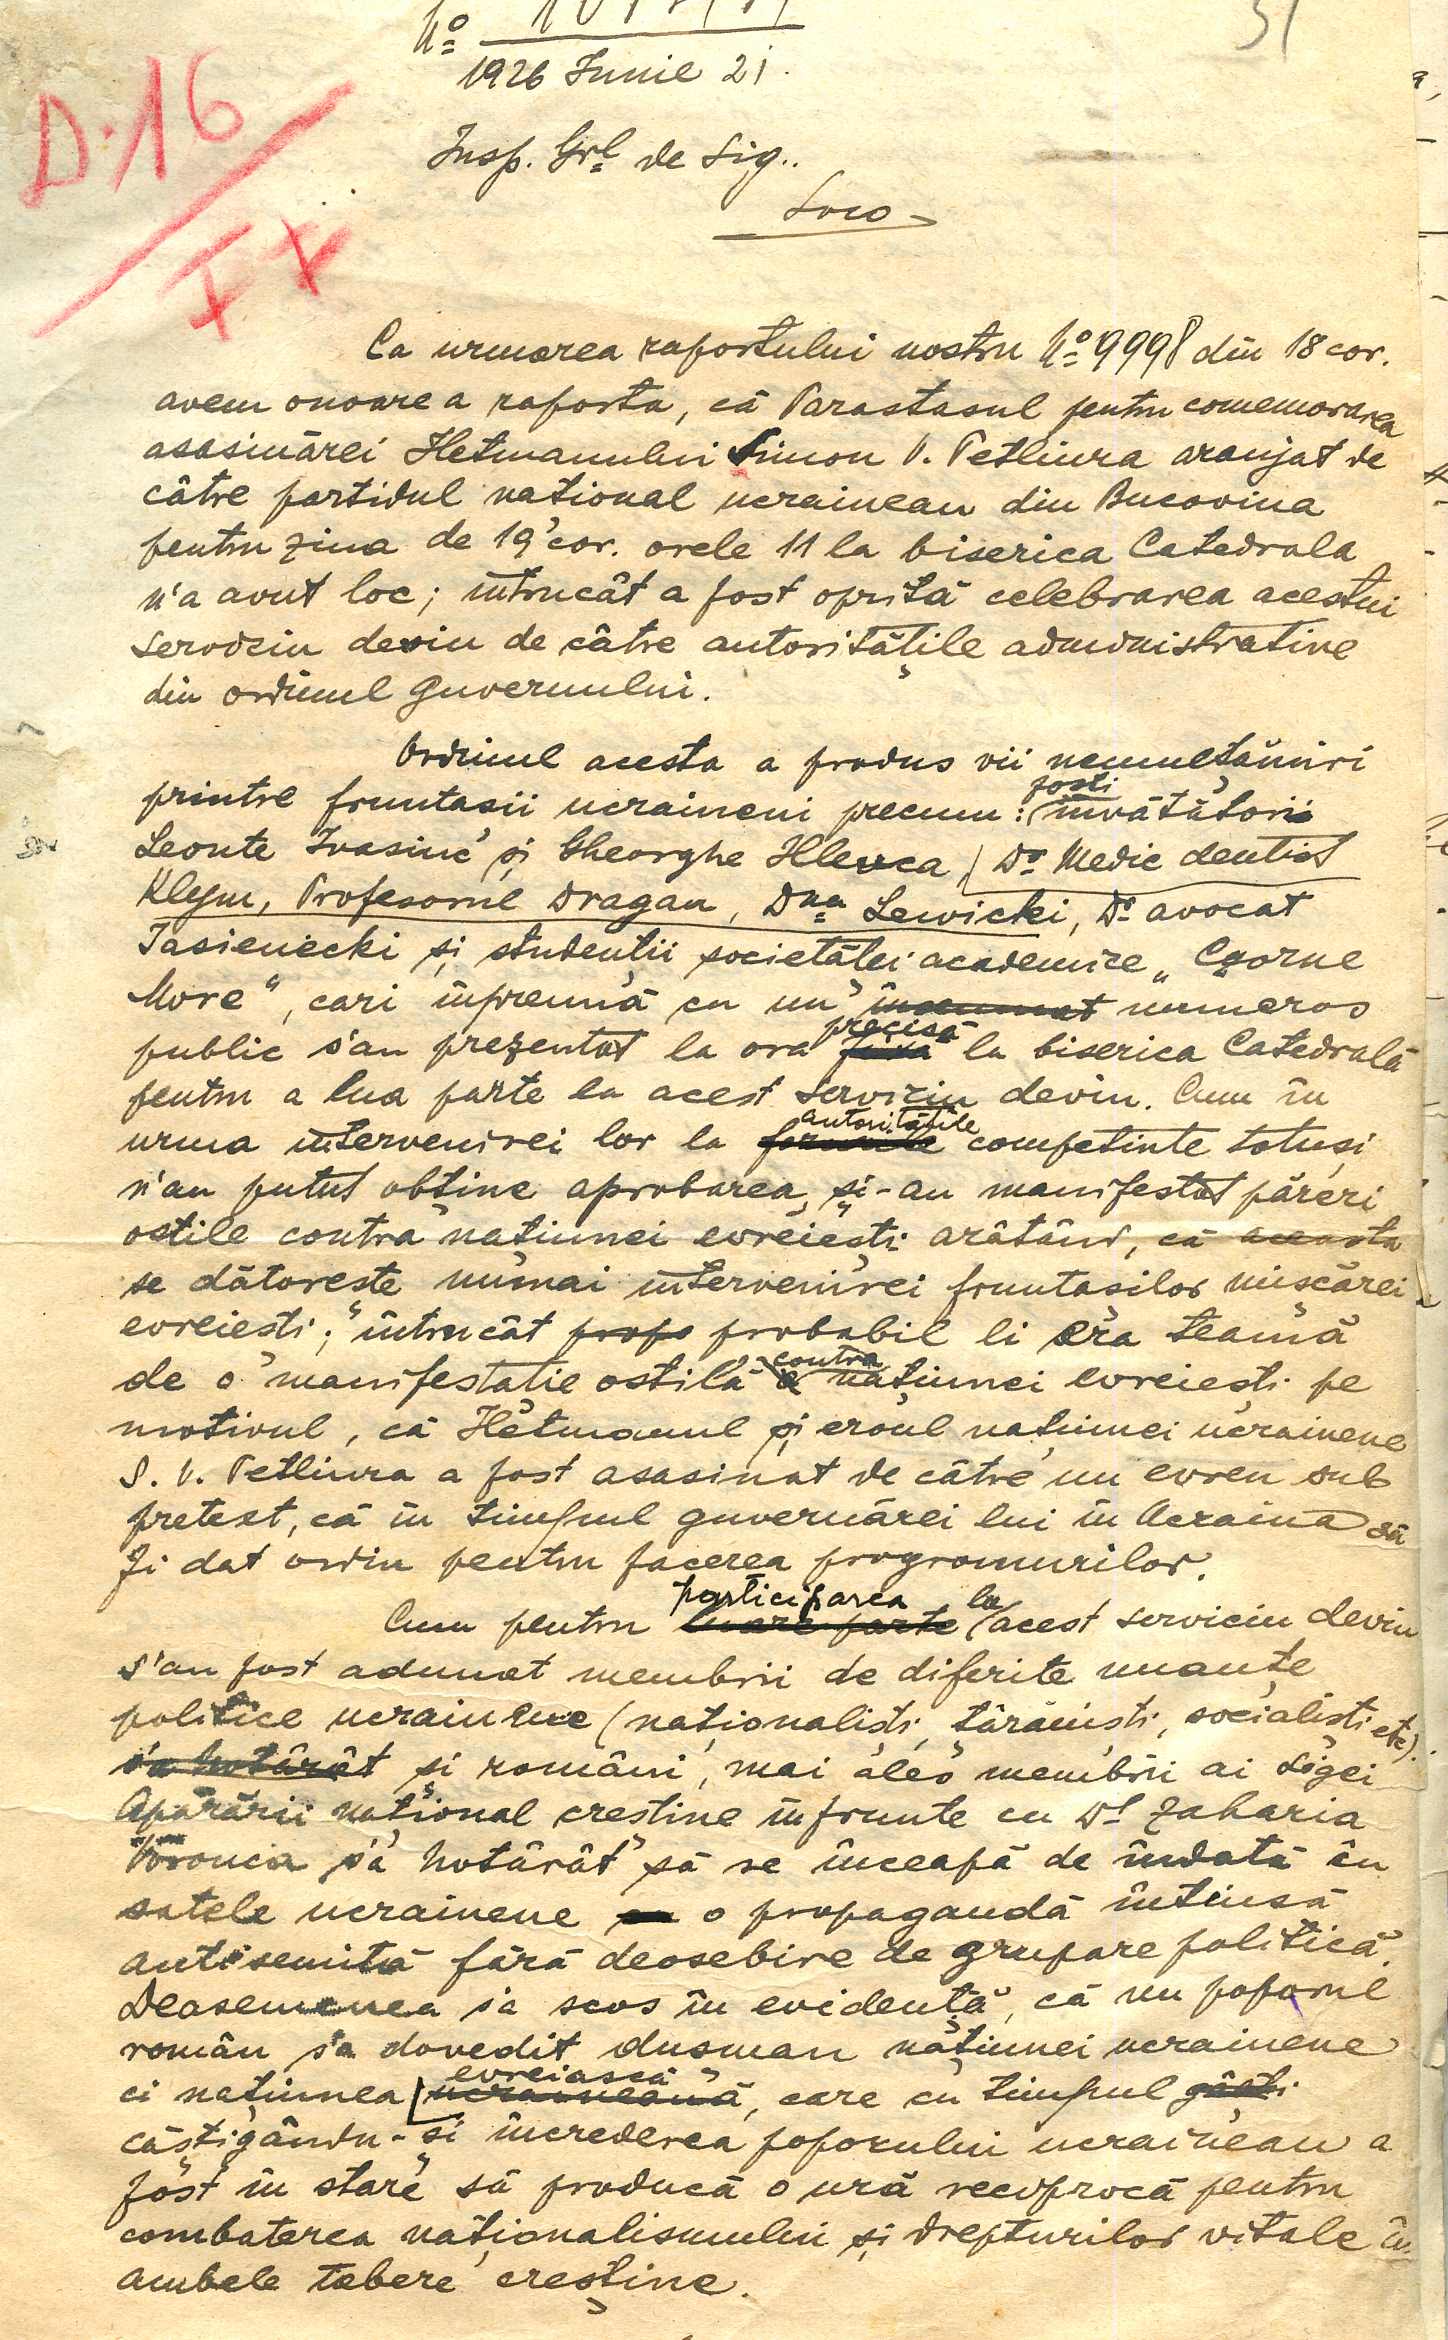 No
1926 Iunie 21.
51
D. 16
IX
Insp. Grl de Sig..
Loco
Ca urmarea raportului nostru No 9998 din 18 cor.
avem onoare a raporta, că Parastasul pentru comemorarea
asasinărei Hetmanului Simon V. Petliura aranjat de
către partidul național ucrainean din Bucovina
pentru ziua de 19 cor. orele 11 la biserica Catedrala
n'a avut loc; întrucât a fost oprită celebrarea acestui
serviciu devin de către autoritățile administrative
din ordinul guvernului.
Ordinul acesta a produs vii nemulțămiri
printre fruntașii ucraineni precum: foști învățătorii
Leonte Ivasiuc și Gheorghe Hleuca, Dr Medic dentist
Klym, Profesorul Dragan, Dna Lewicki, Dr avocat
Jasieniecki și studenții societăței academice „Czorne
More“, cari împreună cu un numeros
public s'au prezentat la ora precisă la biserica Catedrală
pentru a lua parte la acest serviciu devin. Cum în
urma intervenirei lor la autoritățile competinte totuși
n'au putut obține aprobarea, și-au manifestat păreri
ostile contra națiunei evreiești arătând, că aceasta
se dătorește numai intervenirei fruntașilor mișcărei
evreiești; întrucât probabil li era teamă
de o manifestație ostilă contra națiunei evreiești pe
motivul, că Hetmanul și eroul națiunei ucrainene
S. V. Petliura a fost asasinat de către un evreu sub
pretext, că în timpul guvernărei lui în Ucraina să
fi dat ordin pentru facerea progromurilor.
Cum pentru participarea la acest serviciu devin
s'au fost adunat membrii de diferite nuanțe
politice ucrainene (naționaliști, țărăniști, socialiști etc).
s'a hotărât și români, mai ales membrii ai Ligei
Apărării național creștine în frunte cu Dl Zaharia
Voronca s'a hotărât să se înceapă de îndată în
satele ucrainene o propagandă intensă
antisemită fără deosebire de grupare politică.
Deasemenea s'a scos în evidență, că nu poporul
român s'a dovedit dușman națiunei ucrainene
ci națiunea evreiască ucraineană, care cu timpul
câștigându-și încrederea poporului ucrainean a
fost în stare să producă o ură reciprocă pentru
combaterea naționalismului și drepturilor vitale în
ambele tabere creștine.